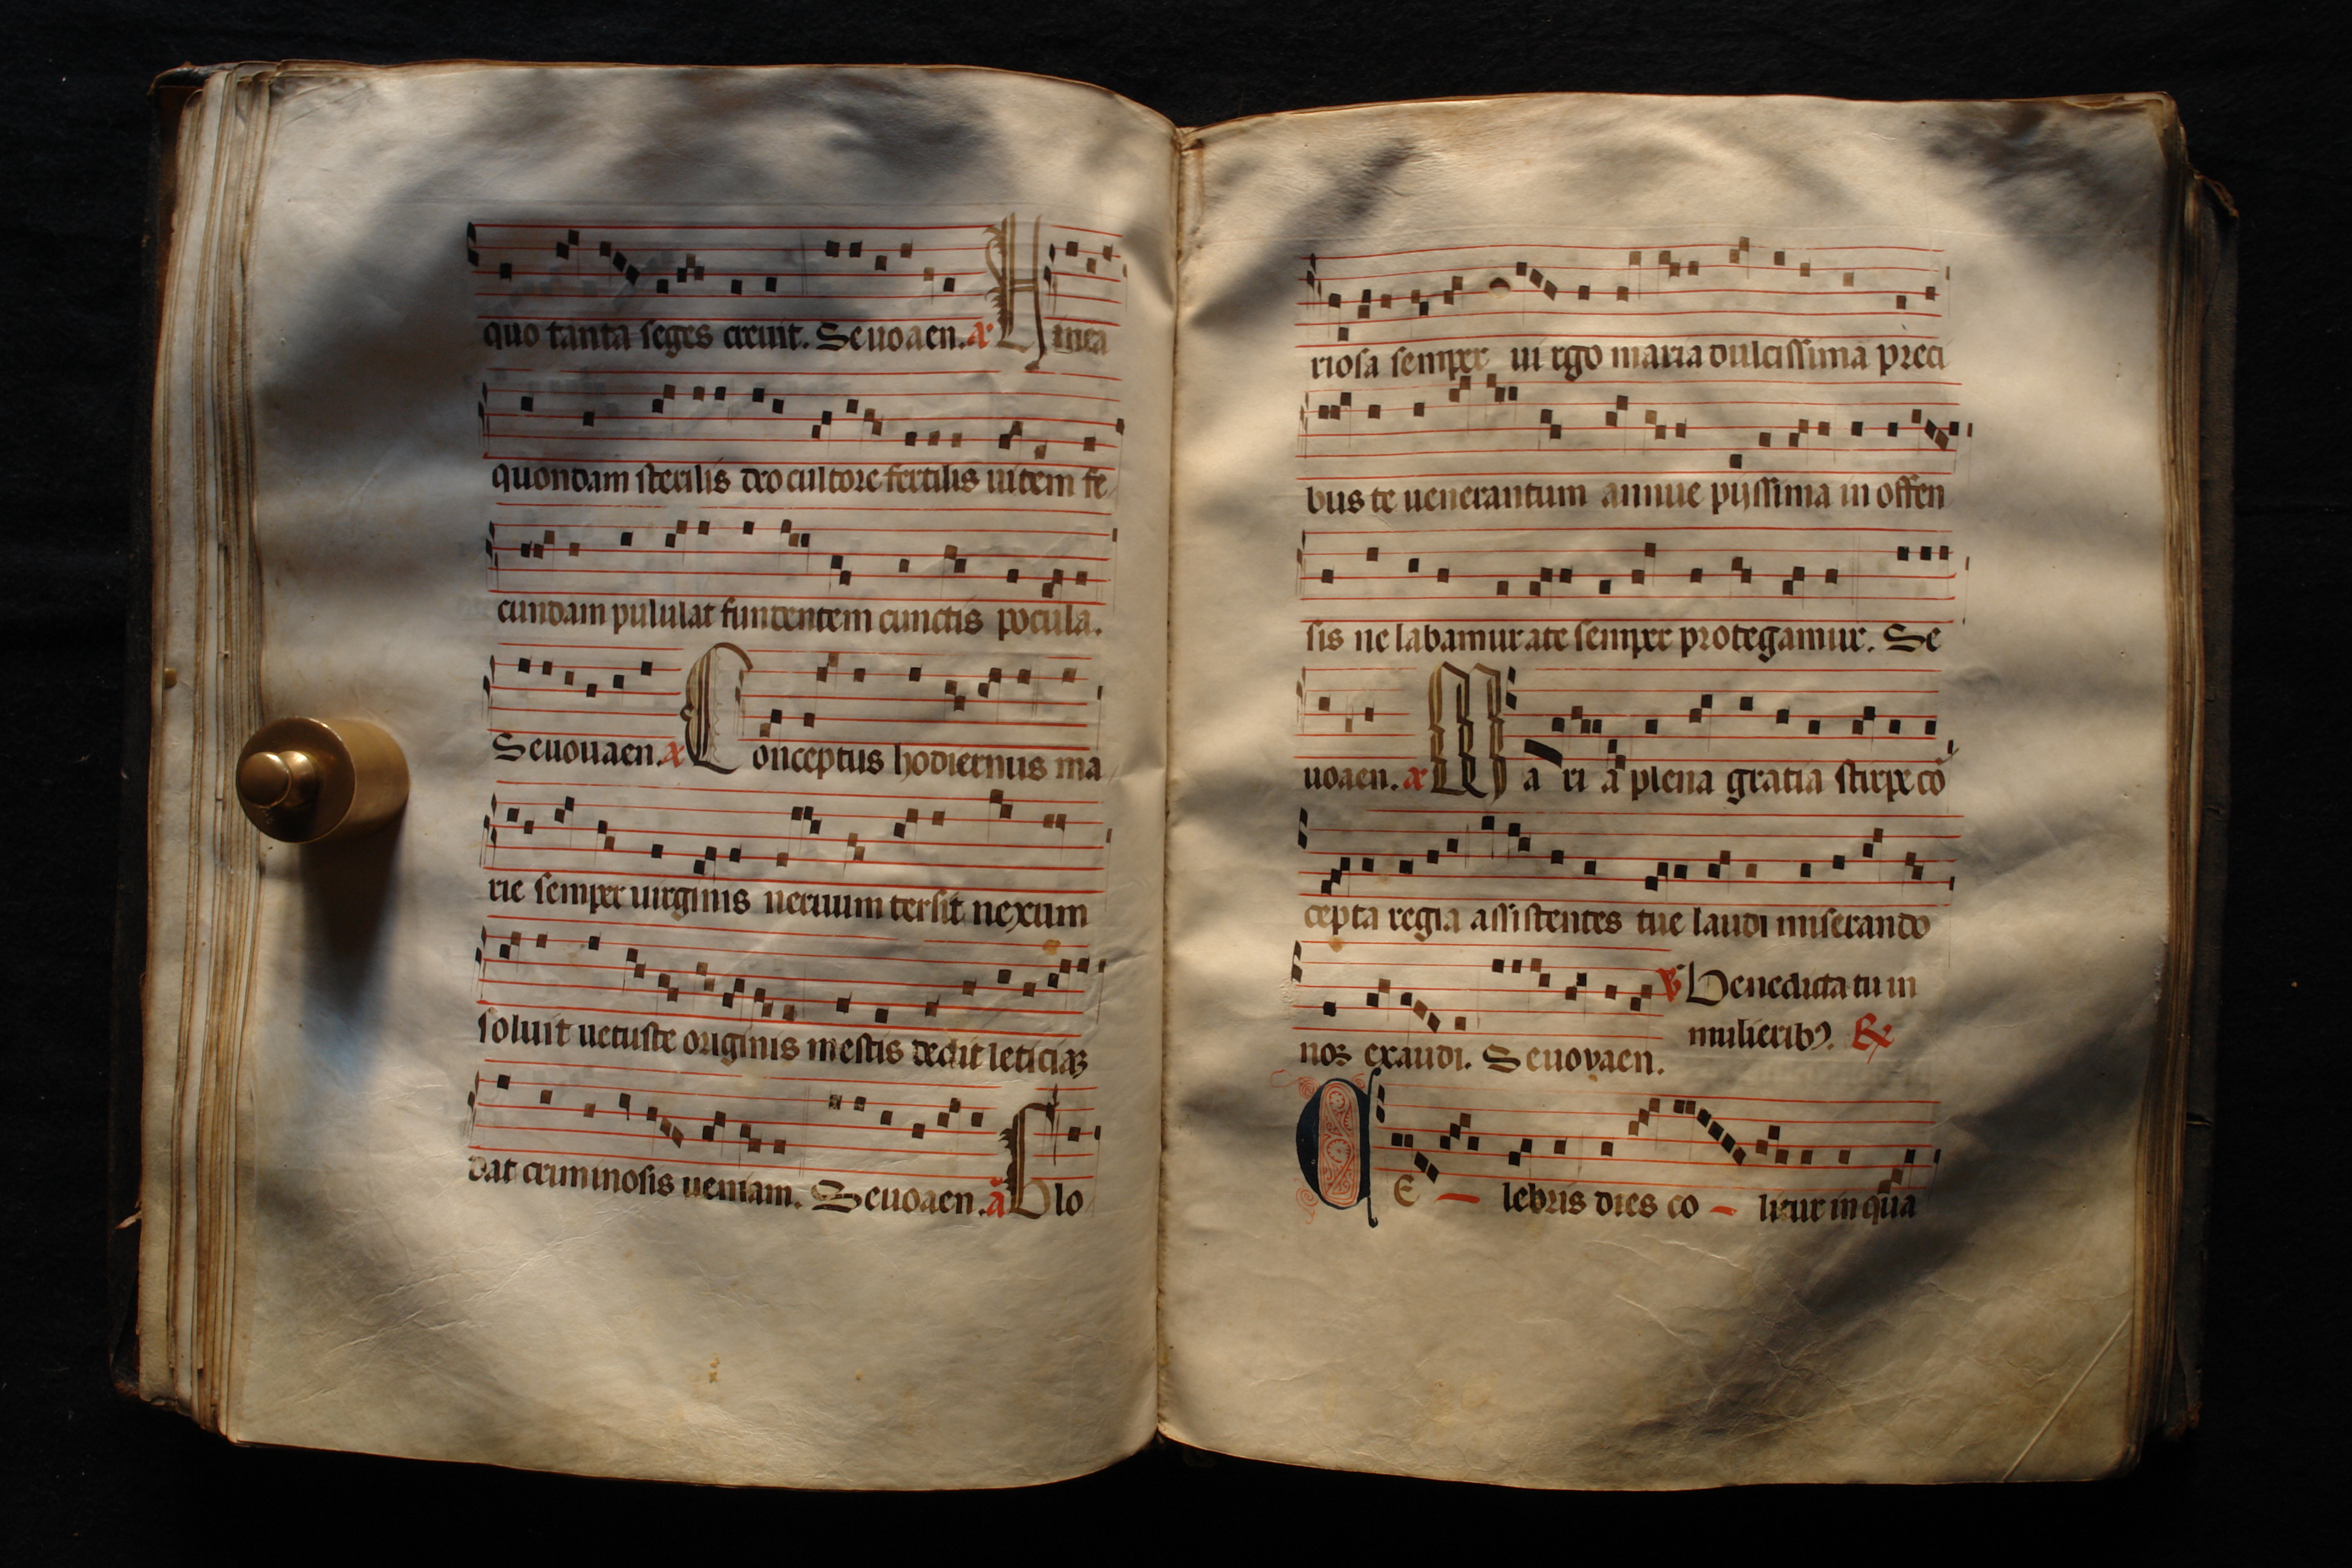 quo tanta seges creuit. Seuoaen. a Uinea
quondam sterilis deo cultore fertilis uitem fe
cundam pululat fundentem cunctis pocula.
Seuouaen. a Conceptus hodiernus ma
rie semper uirginis neruum tersit nexum
soluit uetuste originis mestis dedit leticiaꝫ
dat criminosis ueniam. Seuoaen. a Glo
riosa semper ui rgo maria dulcissima preci
bus te uenerantum annue pijssima in offen
sis ne labamur a te semper protegamur. Se
uoaen. a Ma ri a plena gratia stirpe cō
cepta regia assistentes tue laudi miserando
℣ Benedicta tu in
nos exaudi. Seuovaen. mulieribꝰ. ℞
CE lebris dies co litur in qua